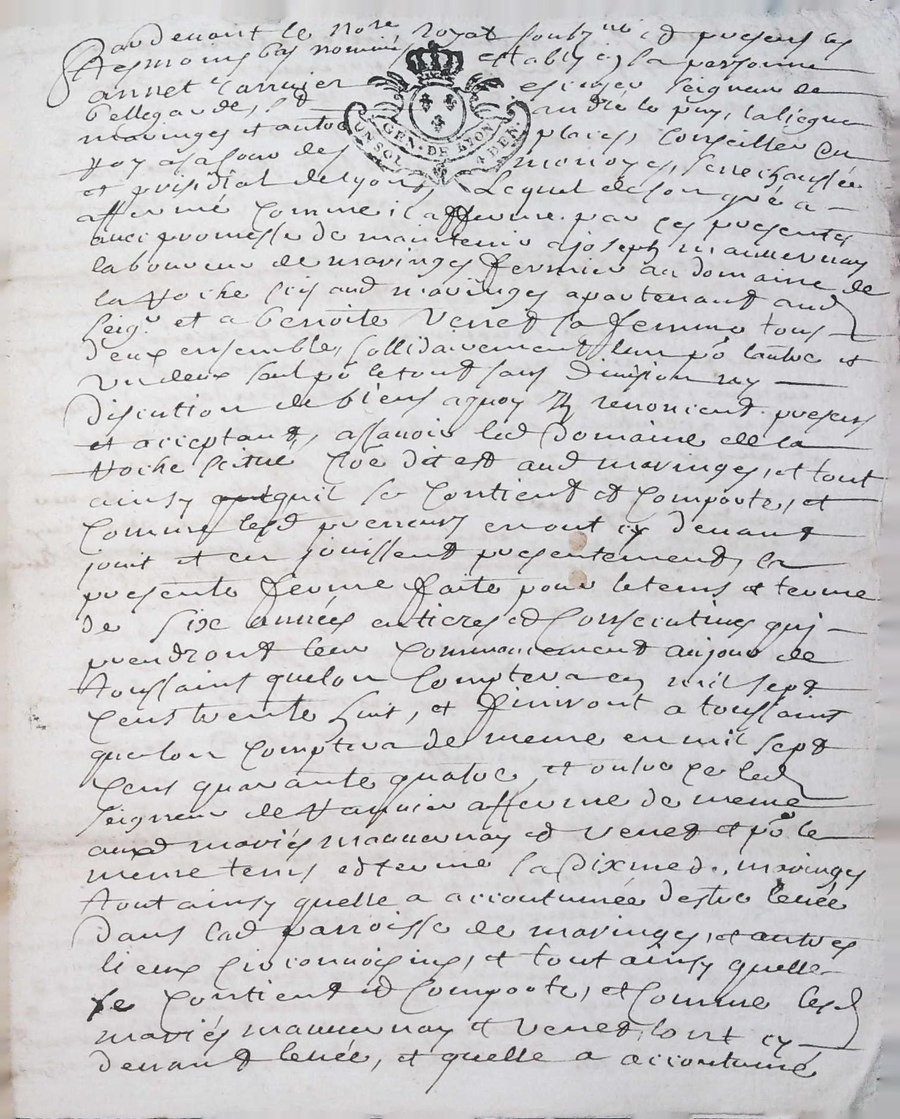 Pardevant le No.re royal soubz.né et presens les
tesmoins bas nommés establis la personne
annet
bellegarde, led. le puy, laliegue
maringes et autres places, Conseiller du
Roy a la Cour des monoyes, Senechaussée
et presidial de Lyon, Lequel de son gré a
affermé Comme il afferme par ces presentes
avec promesse de maintenir a Joseph mauvernay
laboureur de maringes fermier au domaine de
la Roche scis aud. maringes apartenant aud.
Seig.r et a benoite Venet sa femme tous
deux ensemble, sollidairement, lun po. lautre et
un deux seul po. le tout sans division ny
discution de biens a quoy ils renoncent presens
et acceptans, assavoir led. Domaine de la
Roche scitué Coe. dit est aud. maringes, et tout
ainsy quil se Contient et Comporte, et
Comme lesd. preneurs en ont cy devant
jouit et en jouissent presentement, la
presente ferme faite pour le tems et terme
de Six années entieres et Consecutives qui
prendront leur Commancement au jour de
toussaint que lon Comptera en mil sept
Cens trente huit, et finiront a toussaint
que lon Comptera de meme en mil sept
Cens quarante quatre, et outre ce led.
Seigneur de afferme de meme
auxd. mariés mauvernay et Venet et po. le
meme tems et terme la Dixme d. maringes
tout ainsy quelle a accoutumée destre levée
dans lad. parroisse de maringes, et autres
lieux circonvoisins, et tout ainsy quelle
se Contient et Comporte, et Comme lesd.
mariés mauvernay et Venet, lont cy
devant levée, et quelle a accoutumé
GEN. DE LYON
UN SOL 4 DEN.